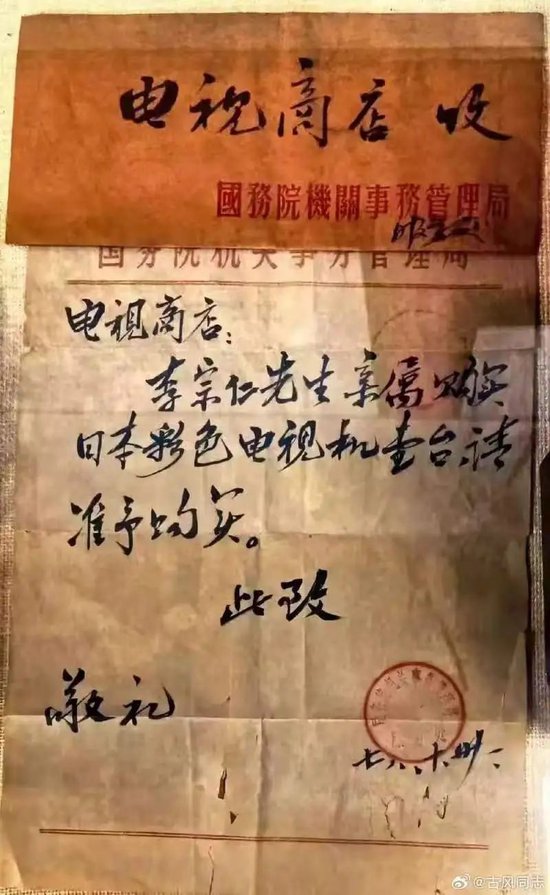 电视商店 收
國務院機關事務管理局
国务院机关事务管理局
电视商店：
李宗仁先生亲属购买
日本彩色电视机壹台，请
准予购买。
此致
敬礼
七八、十、卅一
@古风同志